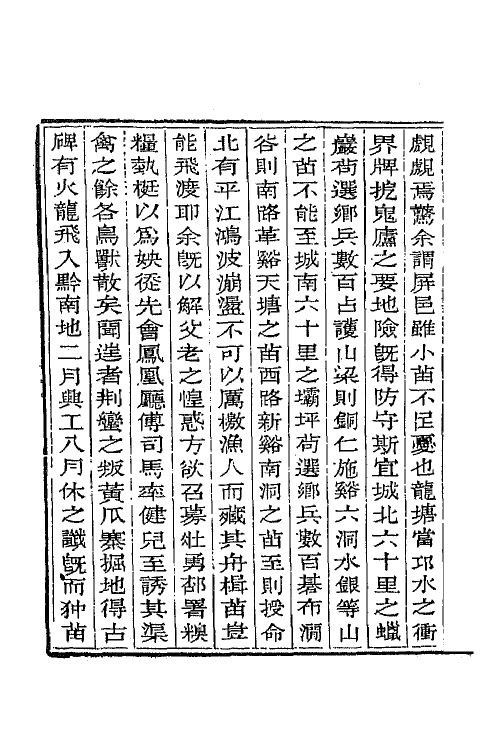 覷覷焉驚余謂屏邑雖小苗不足憂也龍塘當邛水之衝
界牌挖鬼廬之要地險旣得防守斯宜城北六十里之蠟
巖茍選鄉兵數百占護山梁則銅仁施谿六洞水銀等山
之苗不能至城南六十里之壩坪茍選鄉兵數百碁布澗
谷則南路革谿天塘之苗西路新谿南洞之苗至則授命
北有平江鴻波漰盪不可以厲檄漁人而藏其舟楫苗豈
能飛渡耶余旣以解父老之惶惑方欲召募壯勇部署糗
糧執梃以爲㛍從先會鳳凰廳傅司馬率健兒至誘其渠
禽之餘各鳥獸散矣聞逹者荆蠻之叛黃瓜寨掘地得古
碑有火龍飛入黔南地二月興工八月休之讖旣而狆苗